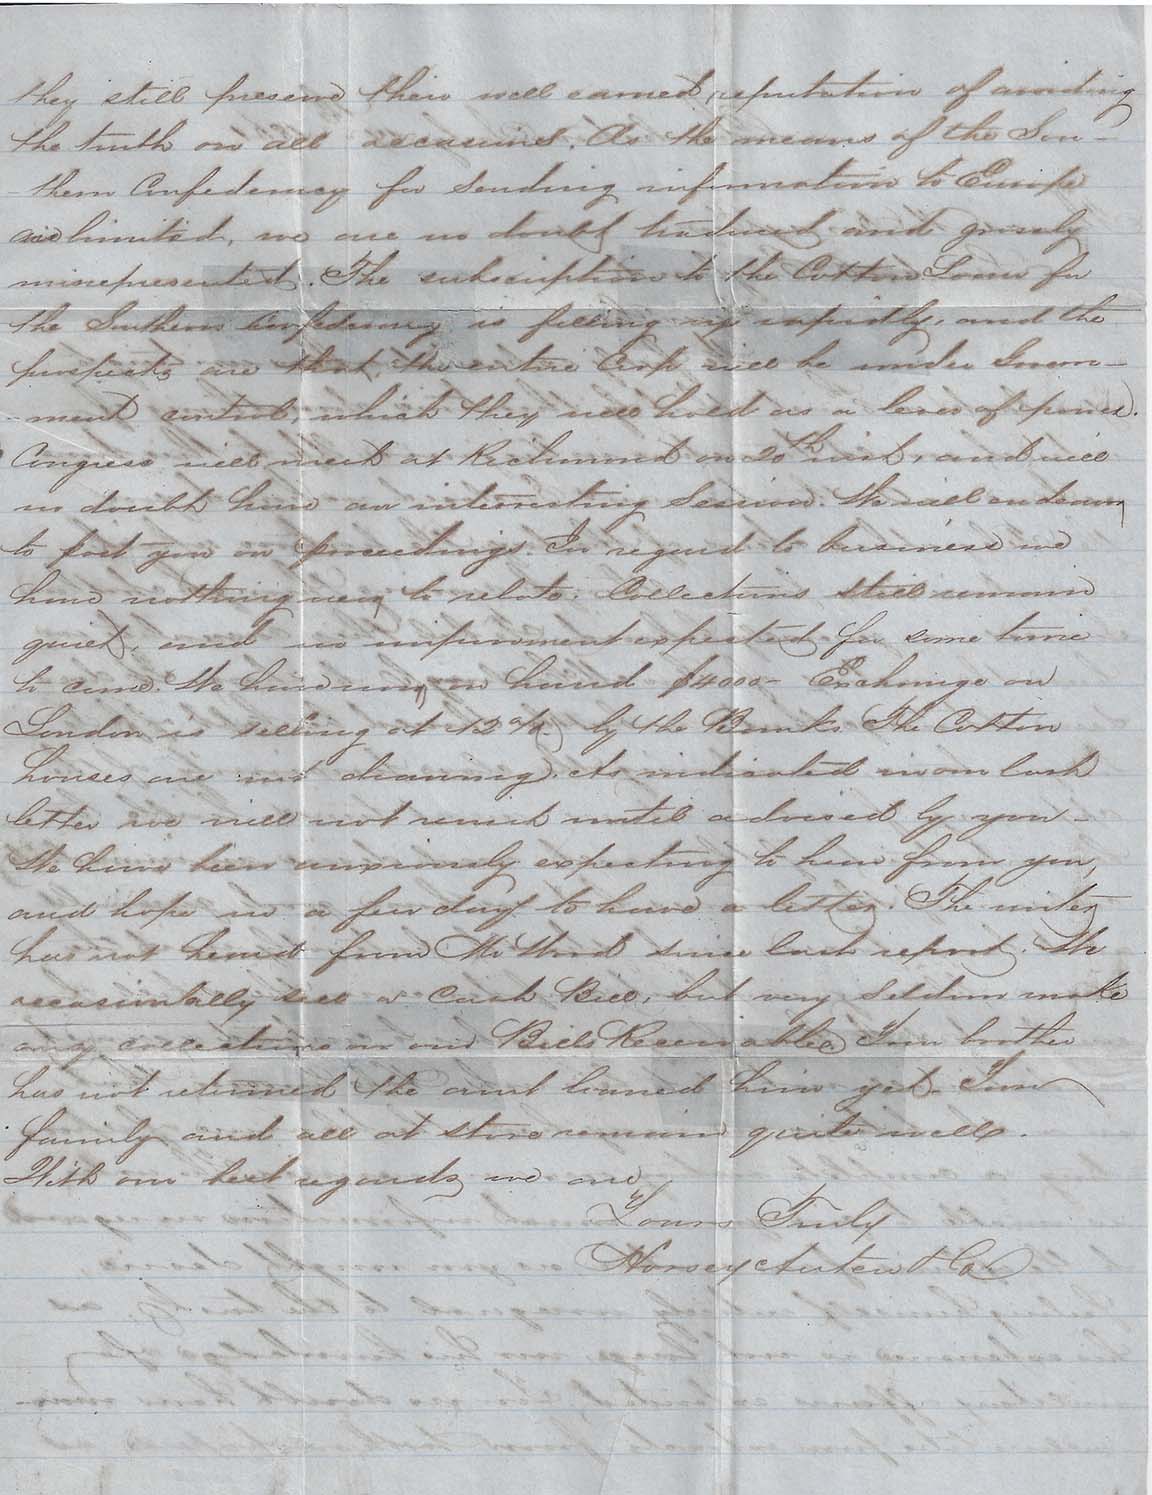 they still preserve their well earned reputation of avoiding
the truth on all occasions. As the means of the Sou-
-thern Confederacy for sending information to Europe
are limited, we are no doubt traduced and grossly
misrepresented. The subscription to the Cotton Loan for
the Southern Confederacy is filling up rapidly, and the
prospects are that the entire Crop will be under Govern-
-ment control, which they will hold as a lever of power.
Congress will meet at Richmond on 20th inst, and will
no doubt have an interesting Session. We will endeavor
to post you on proceedings. In regard to business we
have nothing new to relate. Collections still remain
quiet, and no improvement expected for some time
to come. We have now on hand $4000- Exchange on
London is selling at 12% by the Banks. The Cotton
houses are not drawing. As indicated in our last
letter we will not remit until advised by you-
We have been anxiously expecting to hear from you,
and hope in a few days to have a letter. The writer
has not heard from Mr Hood since last report. We
occasionally sell a Cash Bill, but very seldom make
any collections on our Bills Receivable. Your brother
has not returned the amt loaned him yet. Your
family and all at store remain quite well.
With our best regards we are
Yours Truly
Horsey Auten & Co